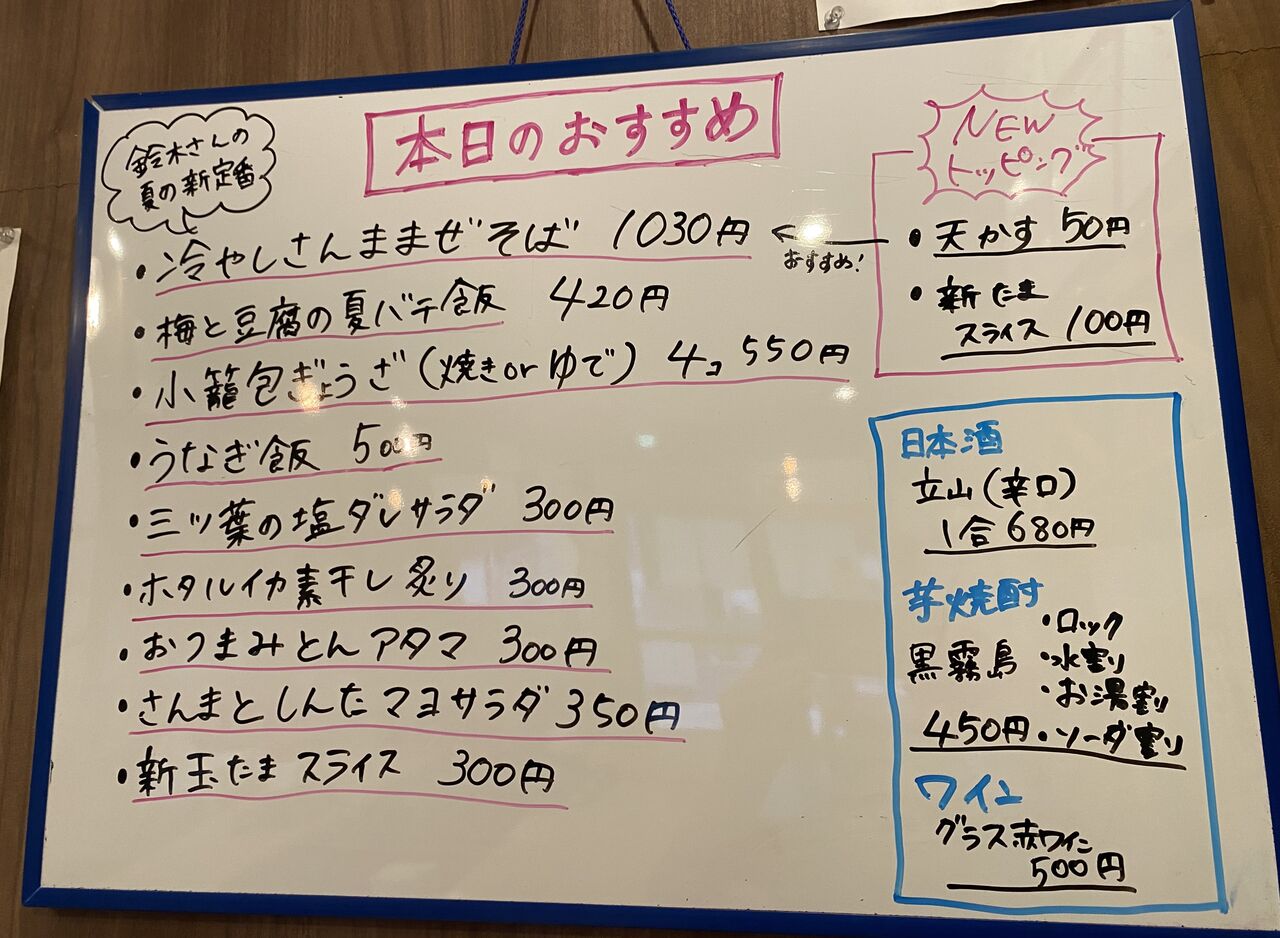 本日のおすすめ
鈴木さんの
夏の新定番
・冷やしさんままぜそば 1030円
・梅と豆腐の夏バテ飯 420円
・小籠包ぎょうざ(焼きorゆで) 4コ 550円
・うなぎ飯 500円
・三ツ葉の塩ダレサラダ 300円
・ホタルイカ素干し炙り 300円
・おつまみとんアタマ 300円
・さんまとしんたマヨサラダ 350円
・新玉たまスライス 300円
NEW
トッピング
・天かす 50円
おすすめ!
・新たま
スライス 100円
日本酒
立山(辛口)
1合 680円
芋焼酎
黒霧島
・ロック
・水割り
・お湯割り
450円・ソーダ割り
ワイン
グラス赤ワイン
500円